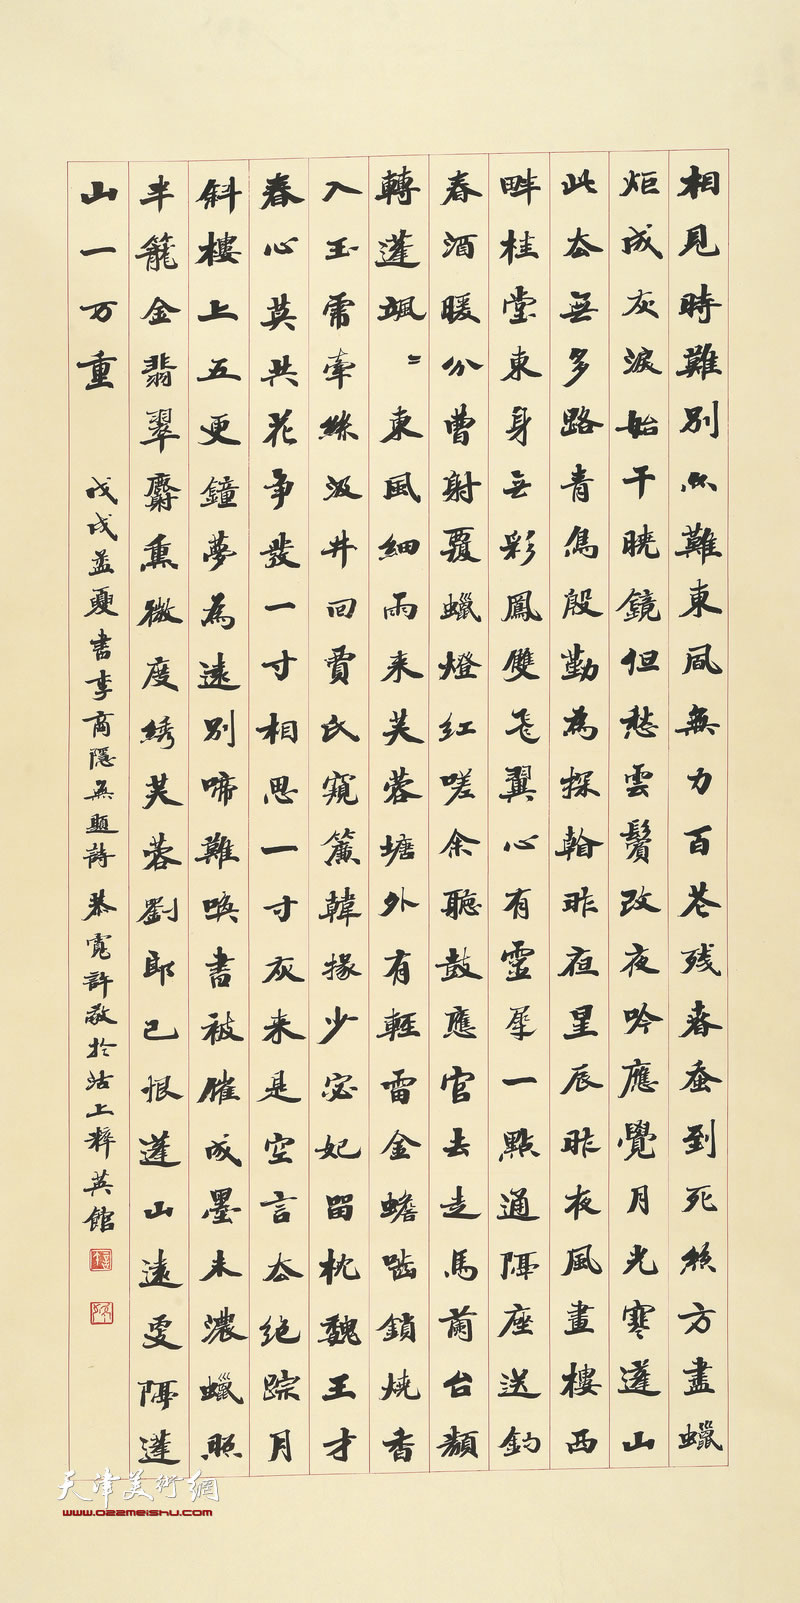 相見時難別亦難東風無力百花残春蚕到死絲方盡蠟
炬成灰淚始干曉鏡但愁雲鬢改夜吟應覺月光寒蓬山
此去無多路青鳥殷勤為探看昨夜星辰昨夜風畫樓西
畔桂堂東身无彩鳳雙飛翼心有靈犀一點通隔座送鈎
春酒暖分曹射覆蠟燈紅嗟余聽鼓應官去走馬蘭台類
轉蓬颯〻東風細雨来芙蓉塘外有輕雷金蟾嚙鎖燒香
入玉帍牽絲汲井回賈氏窺簾韓掾少宓妃留枕魏王才
春心莫共花争發一寸相思一寸灰来是空言去绝踪月
斜樓上五更鐘夢為遠別啼難喚書被催成墨未濃蠟照
半籠金翡翠麝熏微度綉芙蓉劉郎已恨蓬山遠更隔蓬
山一万重
戊戌孟夏書李商隱無題詩恭寬許敬於沽上粹英館
天津美術網
www.022meishu.com